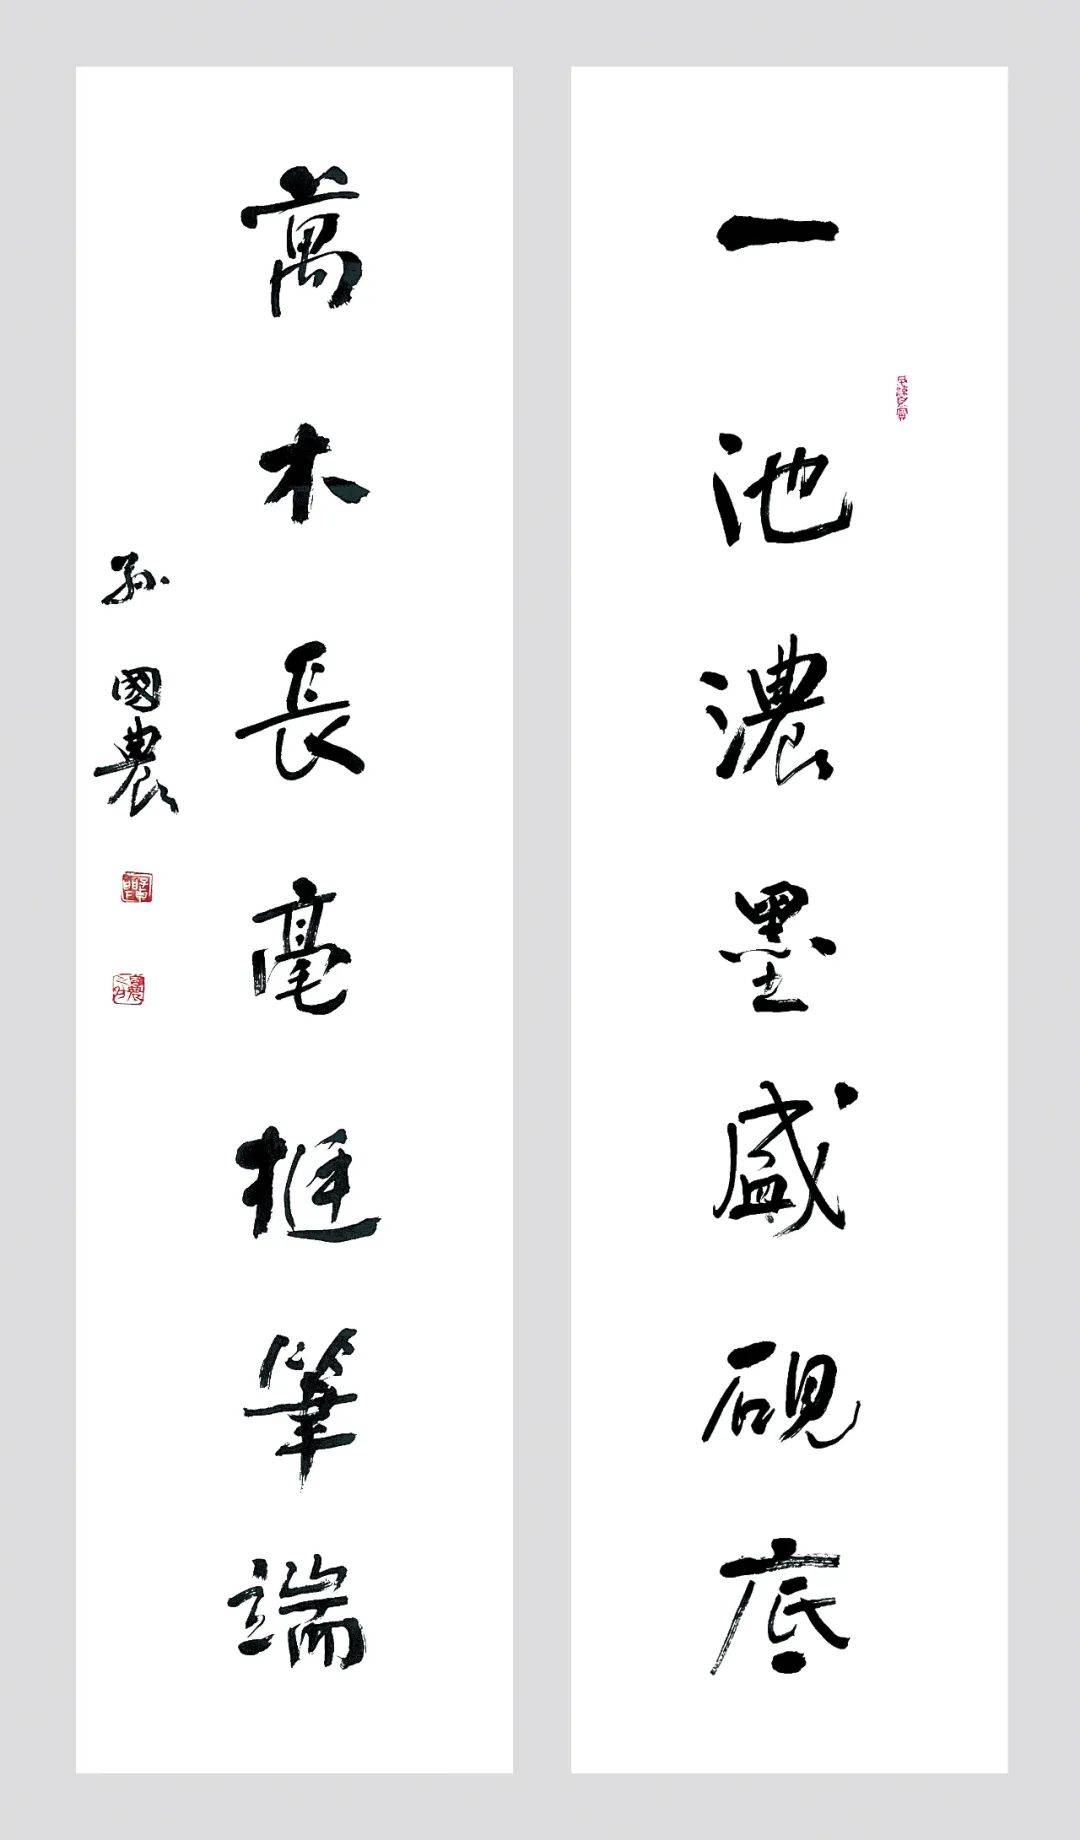 一池濃墨盛硯底
萬木長毫挺筆端
孫國農